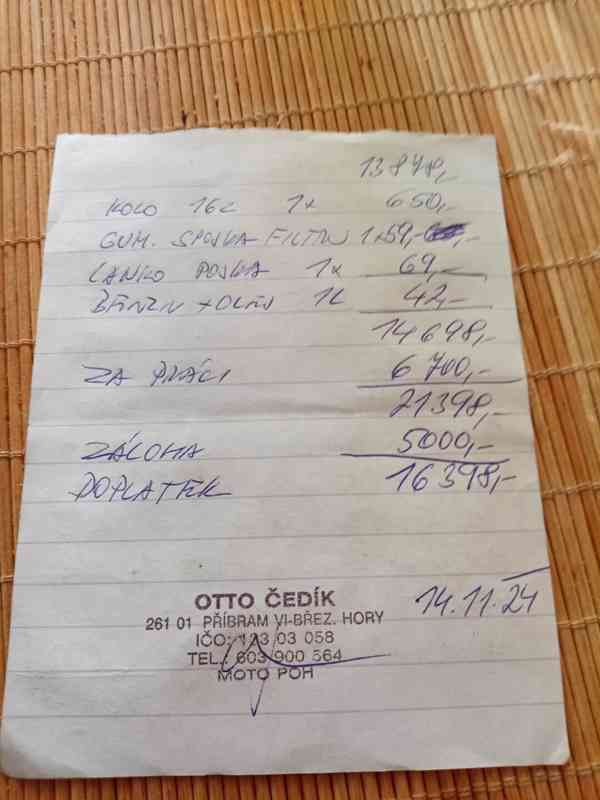 13878,-
KOLO 16z 1x 650,-
GUM. SPOJKA FILTRU 1x59,-
LANKO POJKA 1x 69,-
BENZIN + OLEJ 1L 42,-
14698,-
ZA PRÁCI 6700,-
21398,-
ZÁLOHA 5000,-
DOPLATEK 16398,-
14.11.24
OTTO ČEDÍK
261 01 PŘÍBRAM VI-BŘEZ. HORY
IČO: 03 058
TEL.: 603 900 564
MOTO POH